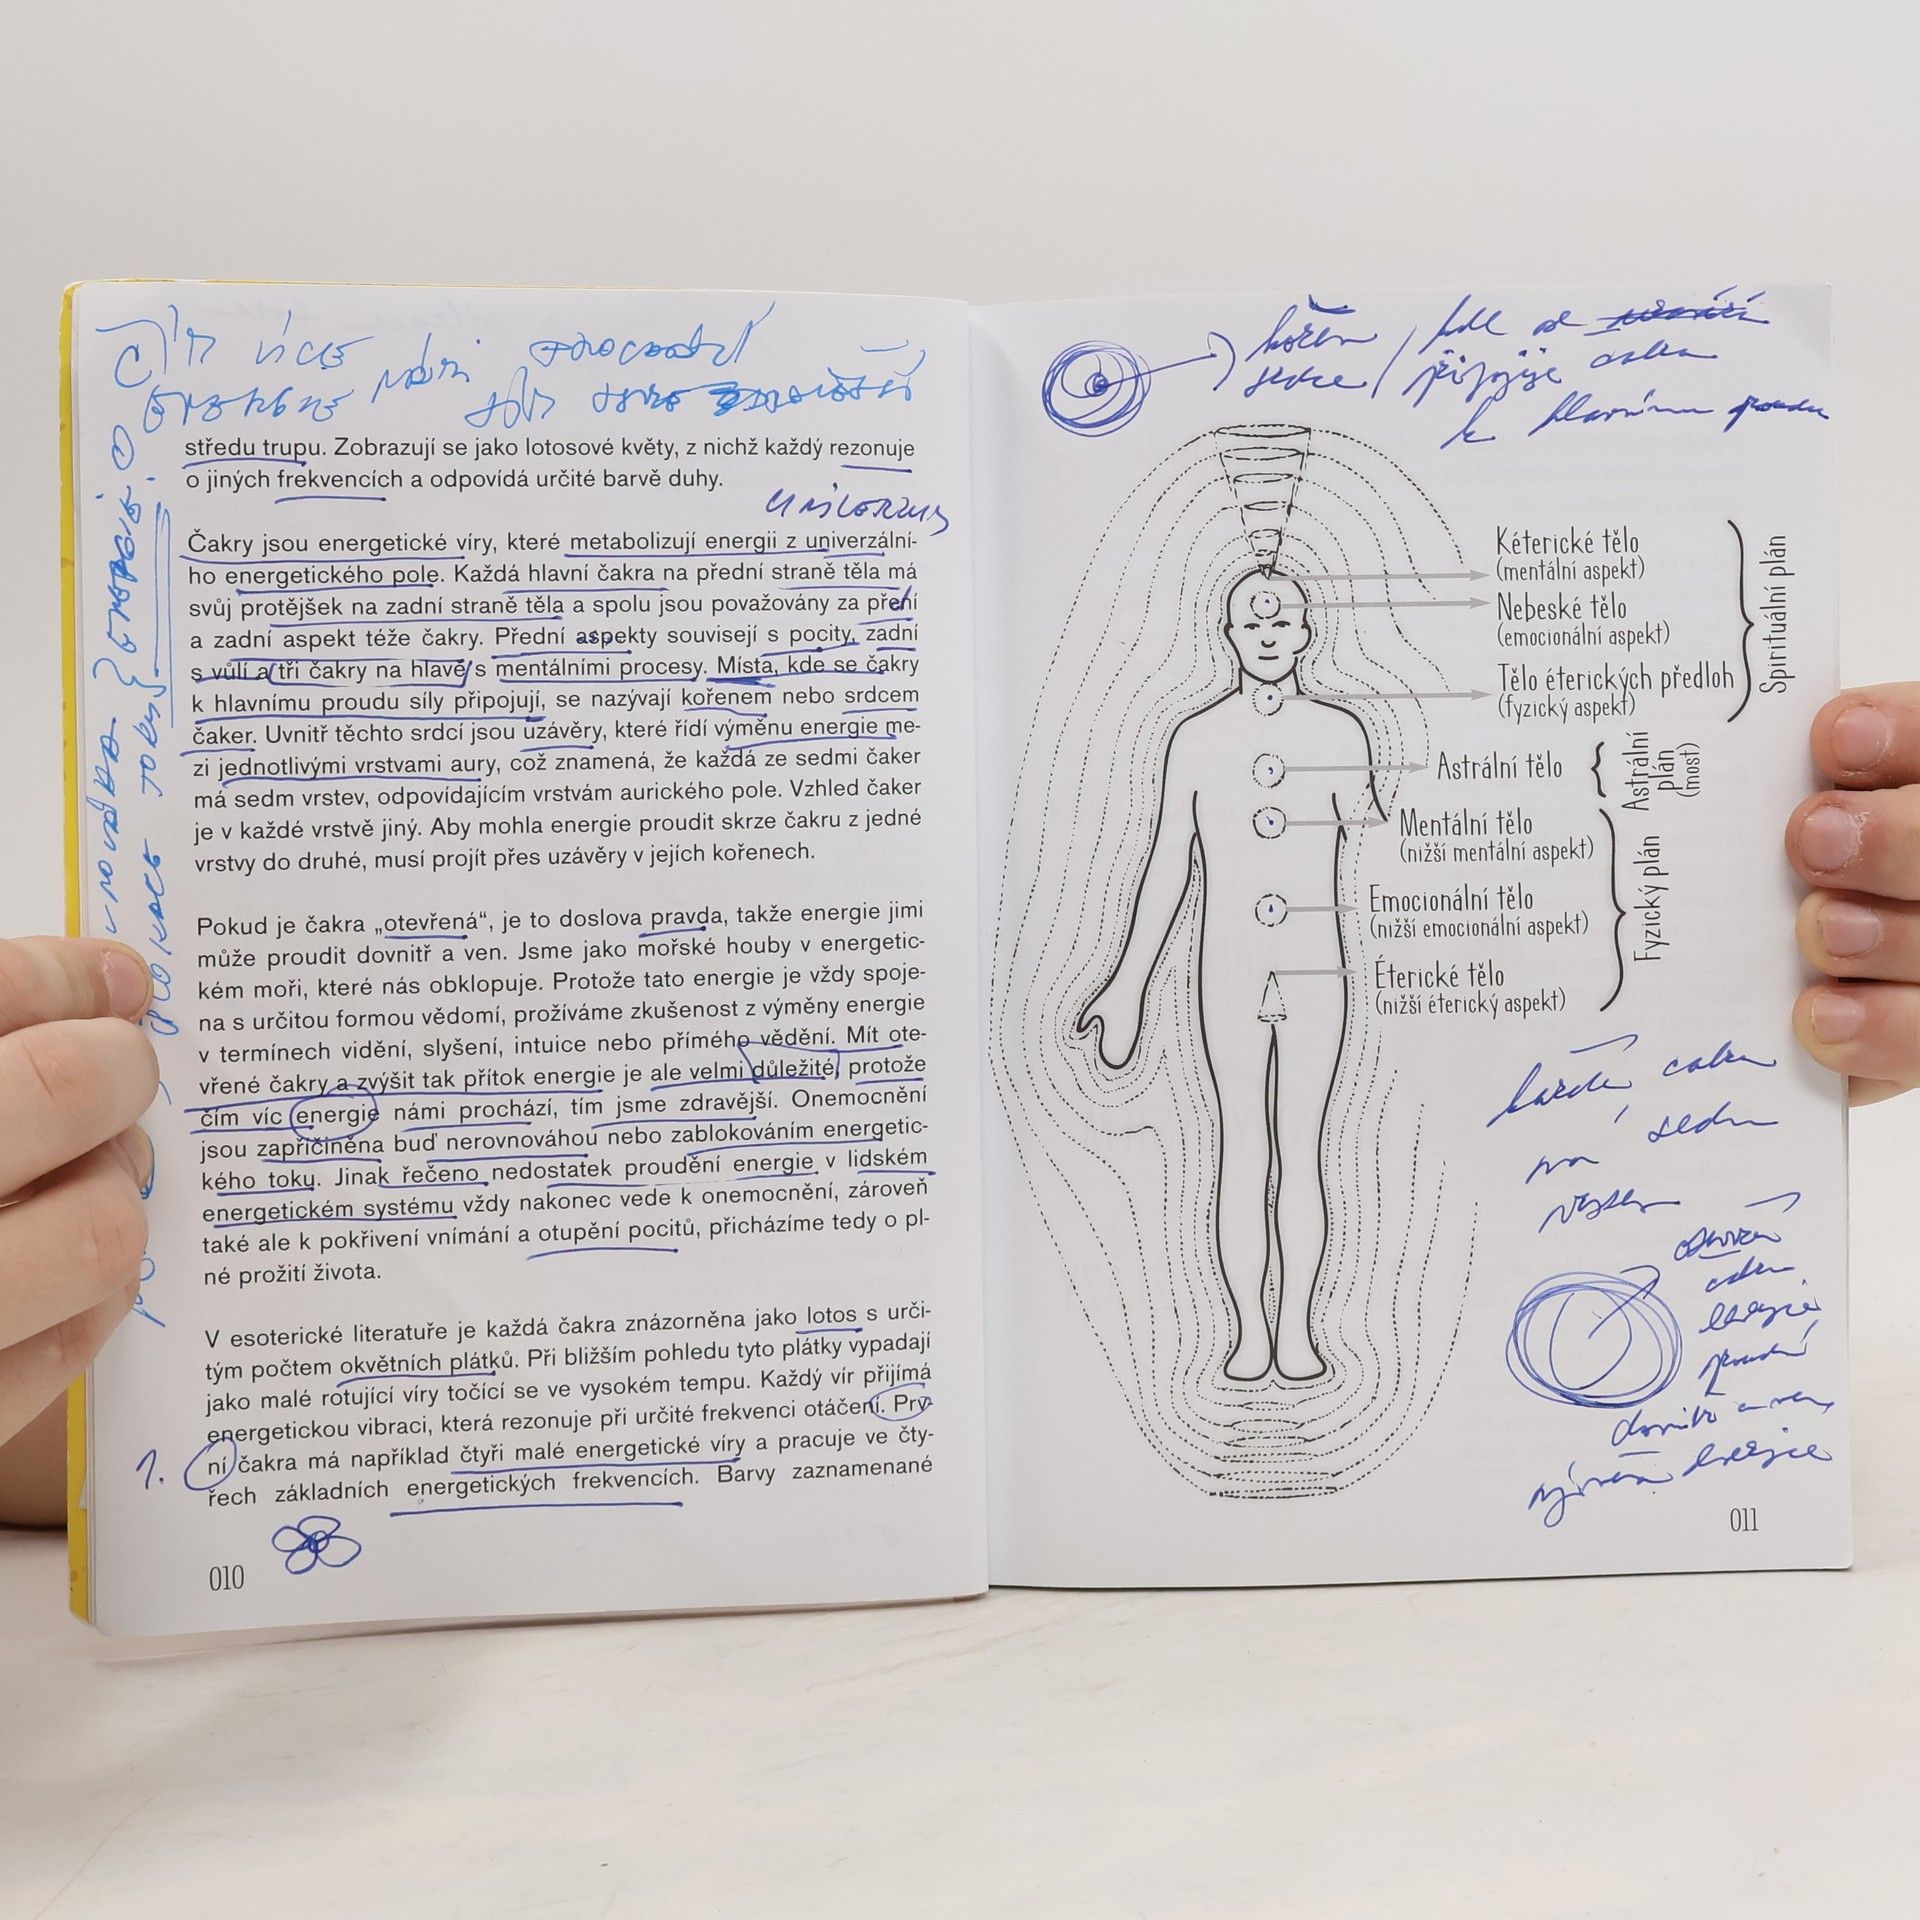 ČÍM VÍCE
ENERGIE NÁMI
středu trupu. Zobrazují se jako lotosové květy, z nichž každý rezonuje
o jiných frekvencích a odpovídá určité barvě duhy.
Čakry jsou energetické víry, které metabolizují energii z univerzální-
ho energetického pole. Každá hlavní čakra na přední straně těla má
svůj protějšek na zadní straně těla a spolu jsou považovány za
a zadní aspekt téže čakry. Přední aspekty souvisejí s pocity, zadní
s vůlí a tři čakry na hlavě s mentálními procesy. Místa, kde se čakry
k hlavnímu proudu síly připojují, se nazývají kořenem nebo srdcem
čaker. Uvnitř těchto srdcí jsou uzávěry, které řídí výměnu energie me-
zi jednotlivými vrstvami aury, což znamená, že každá ze sedmi čaker
má sedm vrstev, odpovídajícím vrstvám aurického pole. Vzhled čaker
je v každé vrstvě jiný. Aby mohla energie proudit skrze čakru z jedné
vrstvy do druhé, musí projít přes uzávěry v jejích kořenech.
Pokud je čakra „otevřená“, je to doslova pravda, takže energie jimi
může proudit dovnitř a ven. Jsme jako mořské houby v energetic-
kém moři, které nás obklopuje. Protože tato energie je vždy spoje-
na s určitou formou vědomí, prožíváme zkušenost z výměny energie
v termínech vidění, slyšení, intuice nebo přímého vědění. Mít ote-
vřené čakry a zvýšit tak přítok energie je ale velmi důležité, protože
čím víc energie námi prochází, tím jsme zdravější. Onemocnění
jsou zapříčiněna buď nerovnováhou nebo zablokováním energetic-
kého toku. Jinak řečeno nedostatek proudění energie v lidském
energetickém systému vždy nakonec vede k onemocnění, zároveň
také ale k pokřivení vnímání a otupění pocitů, přicházíme tedy o pl-
né prožití života.
V esoterické literatuře je každá čakra znázorněna jako lotos s urči-
tým počtem okvětních plátků. Při bližším pohledu tyto plátky vypadají
jako malé rotující víry točící se ve vysokém tempu. Každý vír přijímá
energetickou vibraci, která rezonuje při určité frekvenci otáčení. Prv-
1. ní čakra má například čtyři malé energetické víry a pracuje ve čty-
řech základních energetických frekvencích. Barvy zaznamenané
010
kořen / kde se
srdce / připojuje čakra
k hlavnímu proudu
Kéterické tělo
(mentální aspekt)
Nebeské tělo
(emocionální aspekt)
Tělo éterických předloh
(fyzický aspekt)
Spirituální plán
Astrální tělo
Astrální
plán
(most)
Mentální tělo
(nižší mentální aspekt)
Emocionální tělo
(nižší emocionální aspekt)
Éterické tělo
(nižší éterický aspekt)
Fyzický plán
každá čakra
má sedm
vrstev
čakra
energie
proudí
dovnitř a ven
výměna energie
011